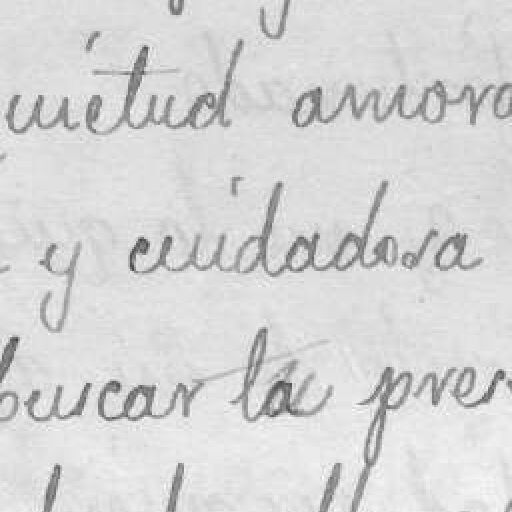 uietud amoro
y cuidadosa
buscar la pres